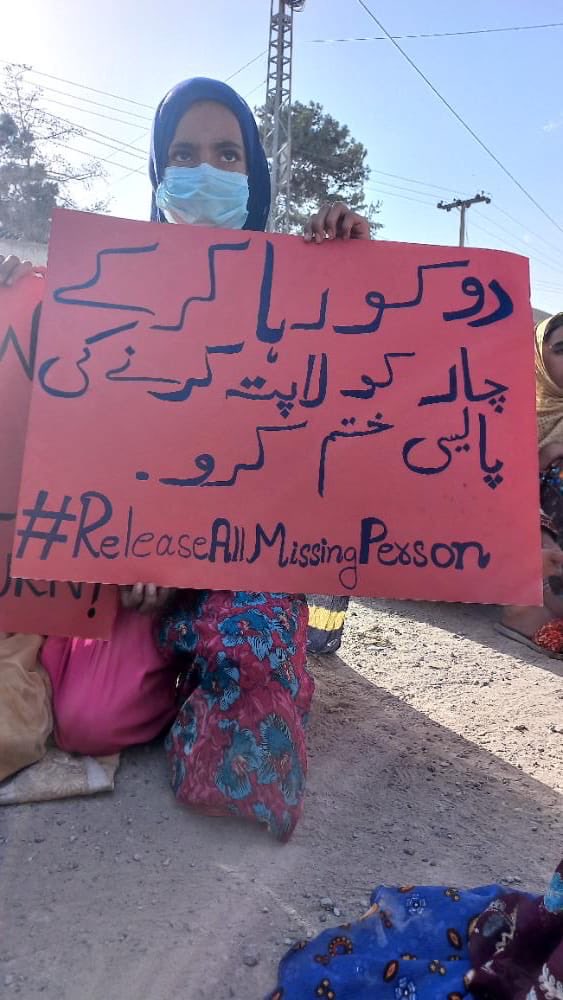 دو کو رہا کرکے
چار کو لاپتہ کرنے کی
پالیسی ختم کرو.
#ReleaseAllMissingPerson